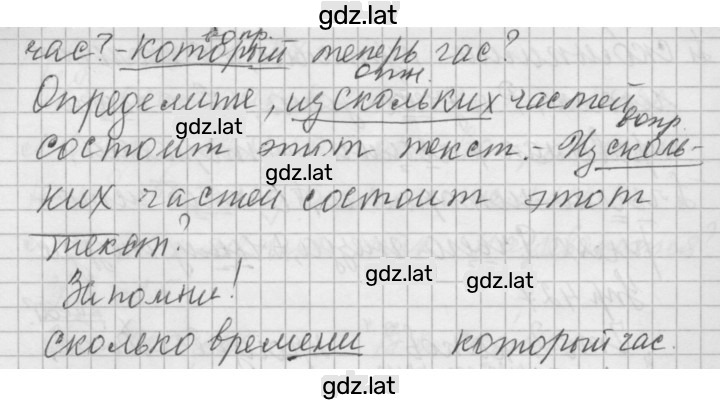 gdz.lat
вопр.
час? - который теперь час?
отн.
Определите, из скольких частей
gdz.lat
вопр.
состоит этот текст. - Из сколь-
gdz.lat
ких частей состоит этот
текст?
gdz.lat gdz.lat
Запомни!
сколько времени который час.
gdz.lat